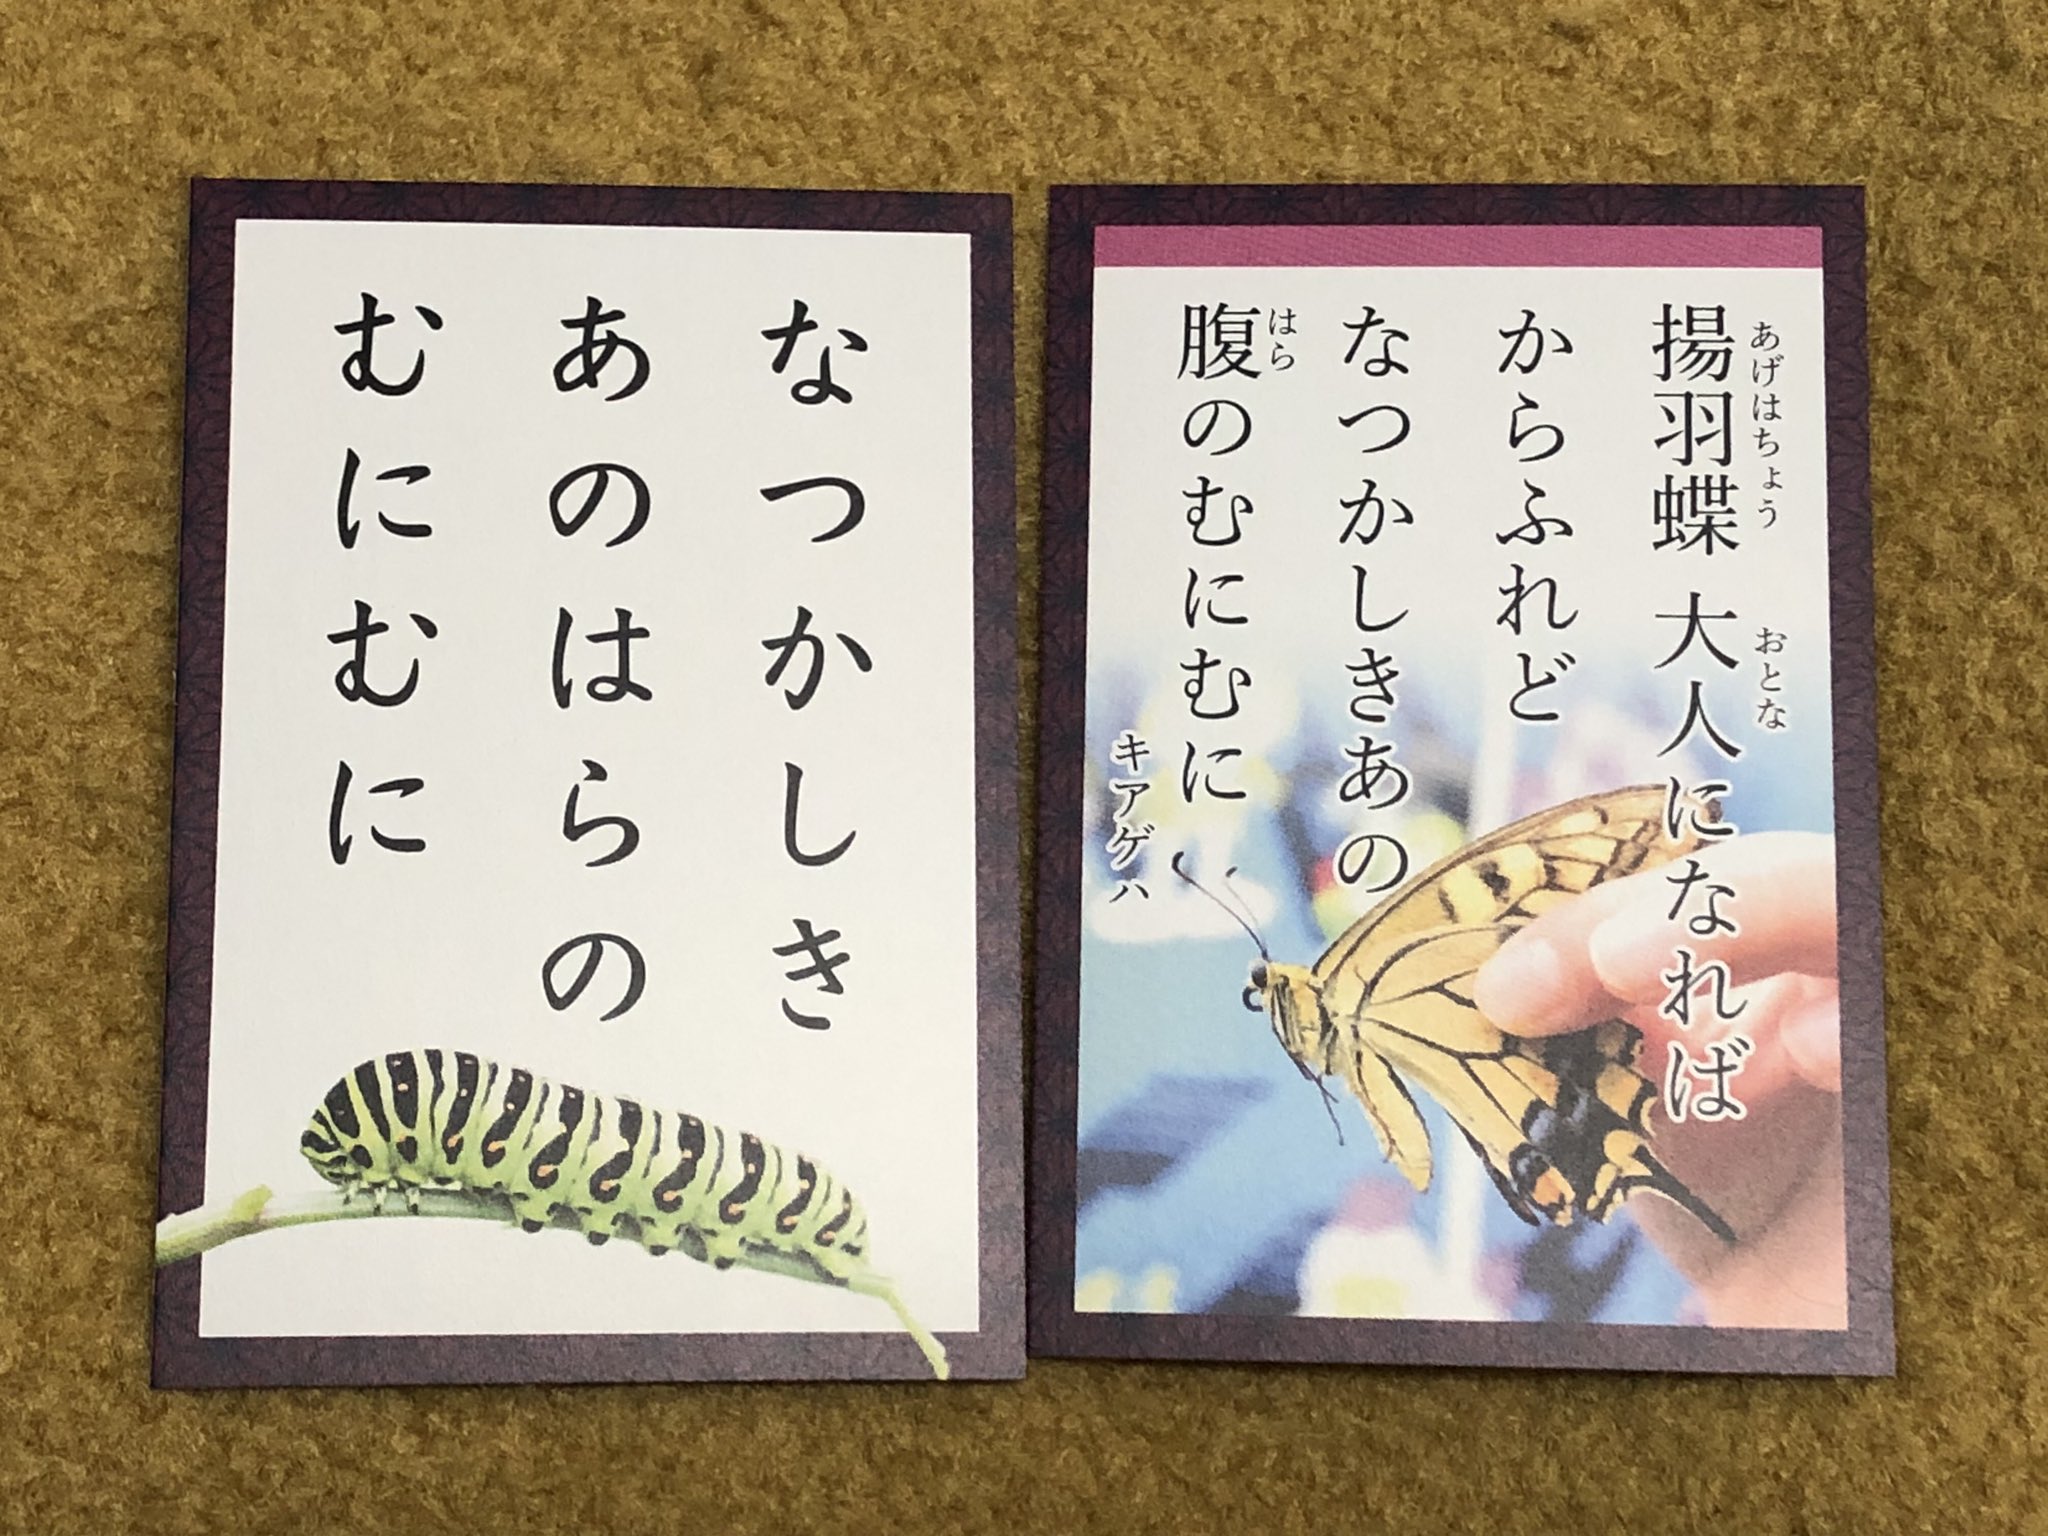 なつかしき
あのはらの
むにむに
揚羽蝶 大人になれば
あげはちょう おとな
からふれど
なつかしきあの
腹のむにむに
はら
キアゲハ